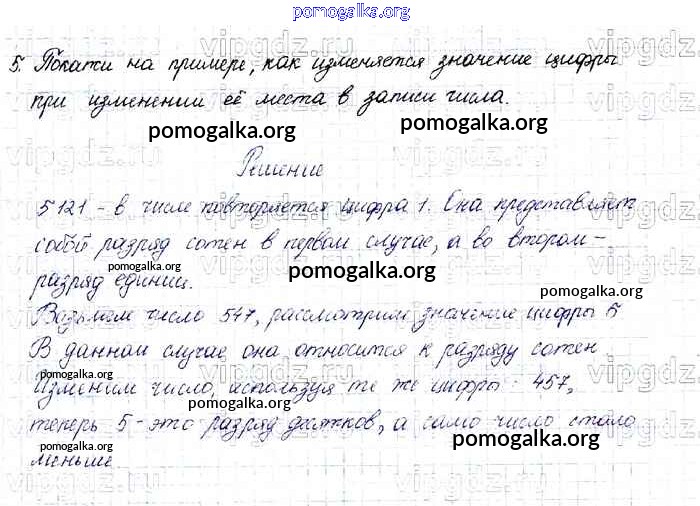 pomogalka.org
5. Покажи на примере, как изменяется значение цифры
при изменении её места в записи числа.
pomogalka.org pomogalka.org
Решение
5121 - в числе повторяется цифра 1. Она представляет
собой разряд сотен в первом случае, а во втором -
pomogalka.org pomogalka.org
разряд единиц.
pomogalka.org
Возьмем число 547, рассмотрим значение цифры 5
В данном случае она относится к разряду сотен
Изменим число, используя те же цифры: 457,
pomogalka.org
теперь 5 - это разряд десятков, а само число стало
pomogalka.org pomogalka.org
меньше